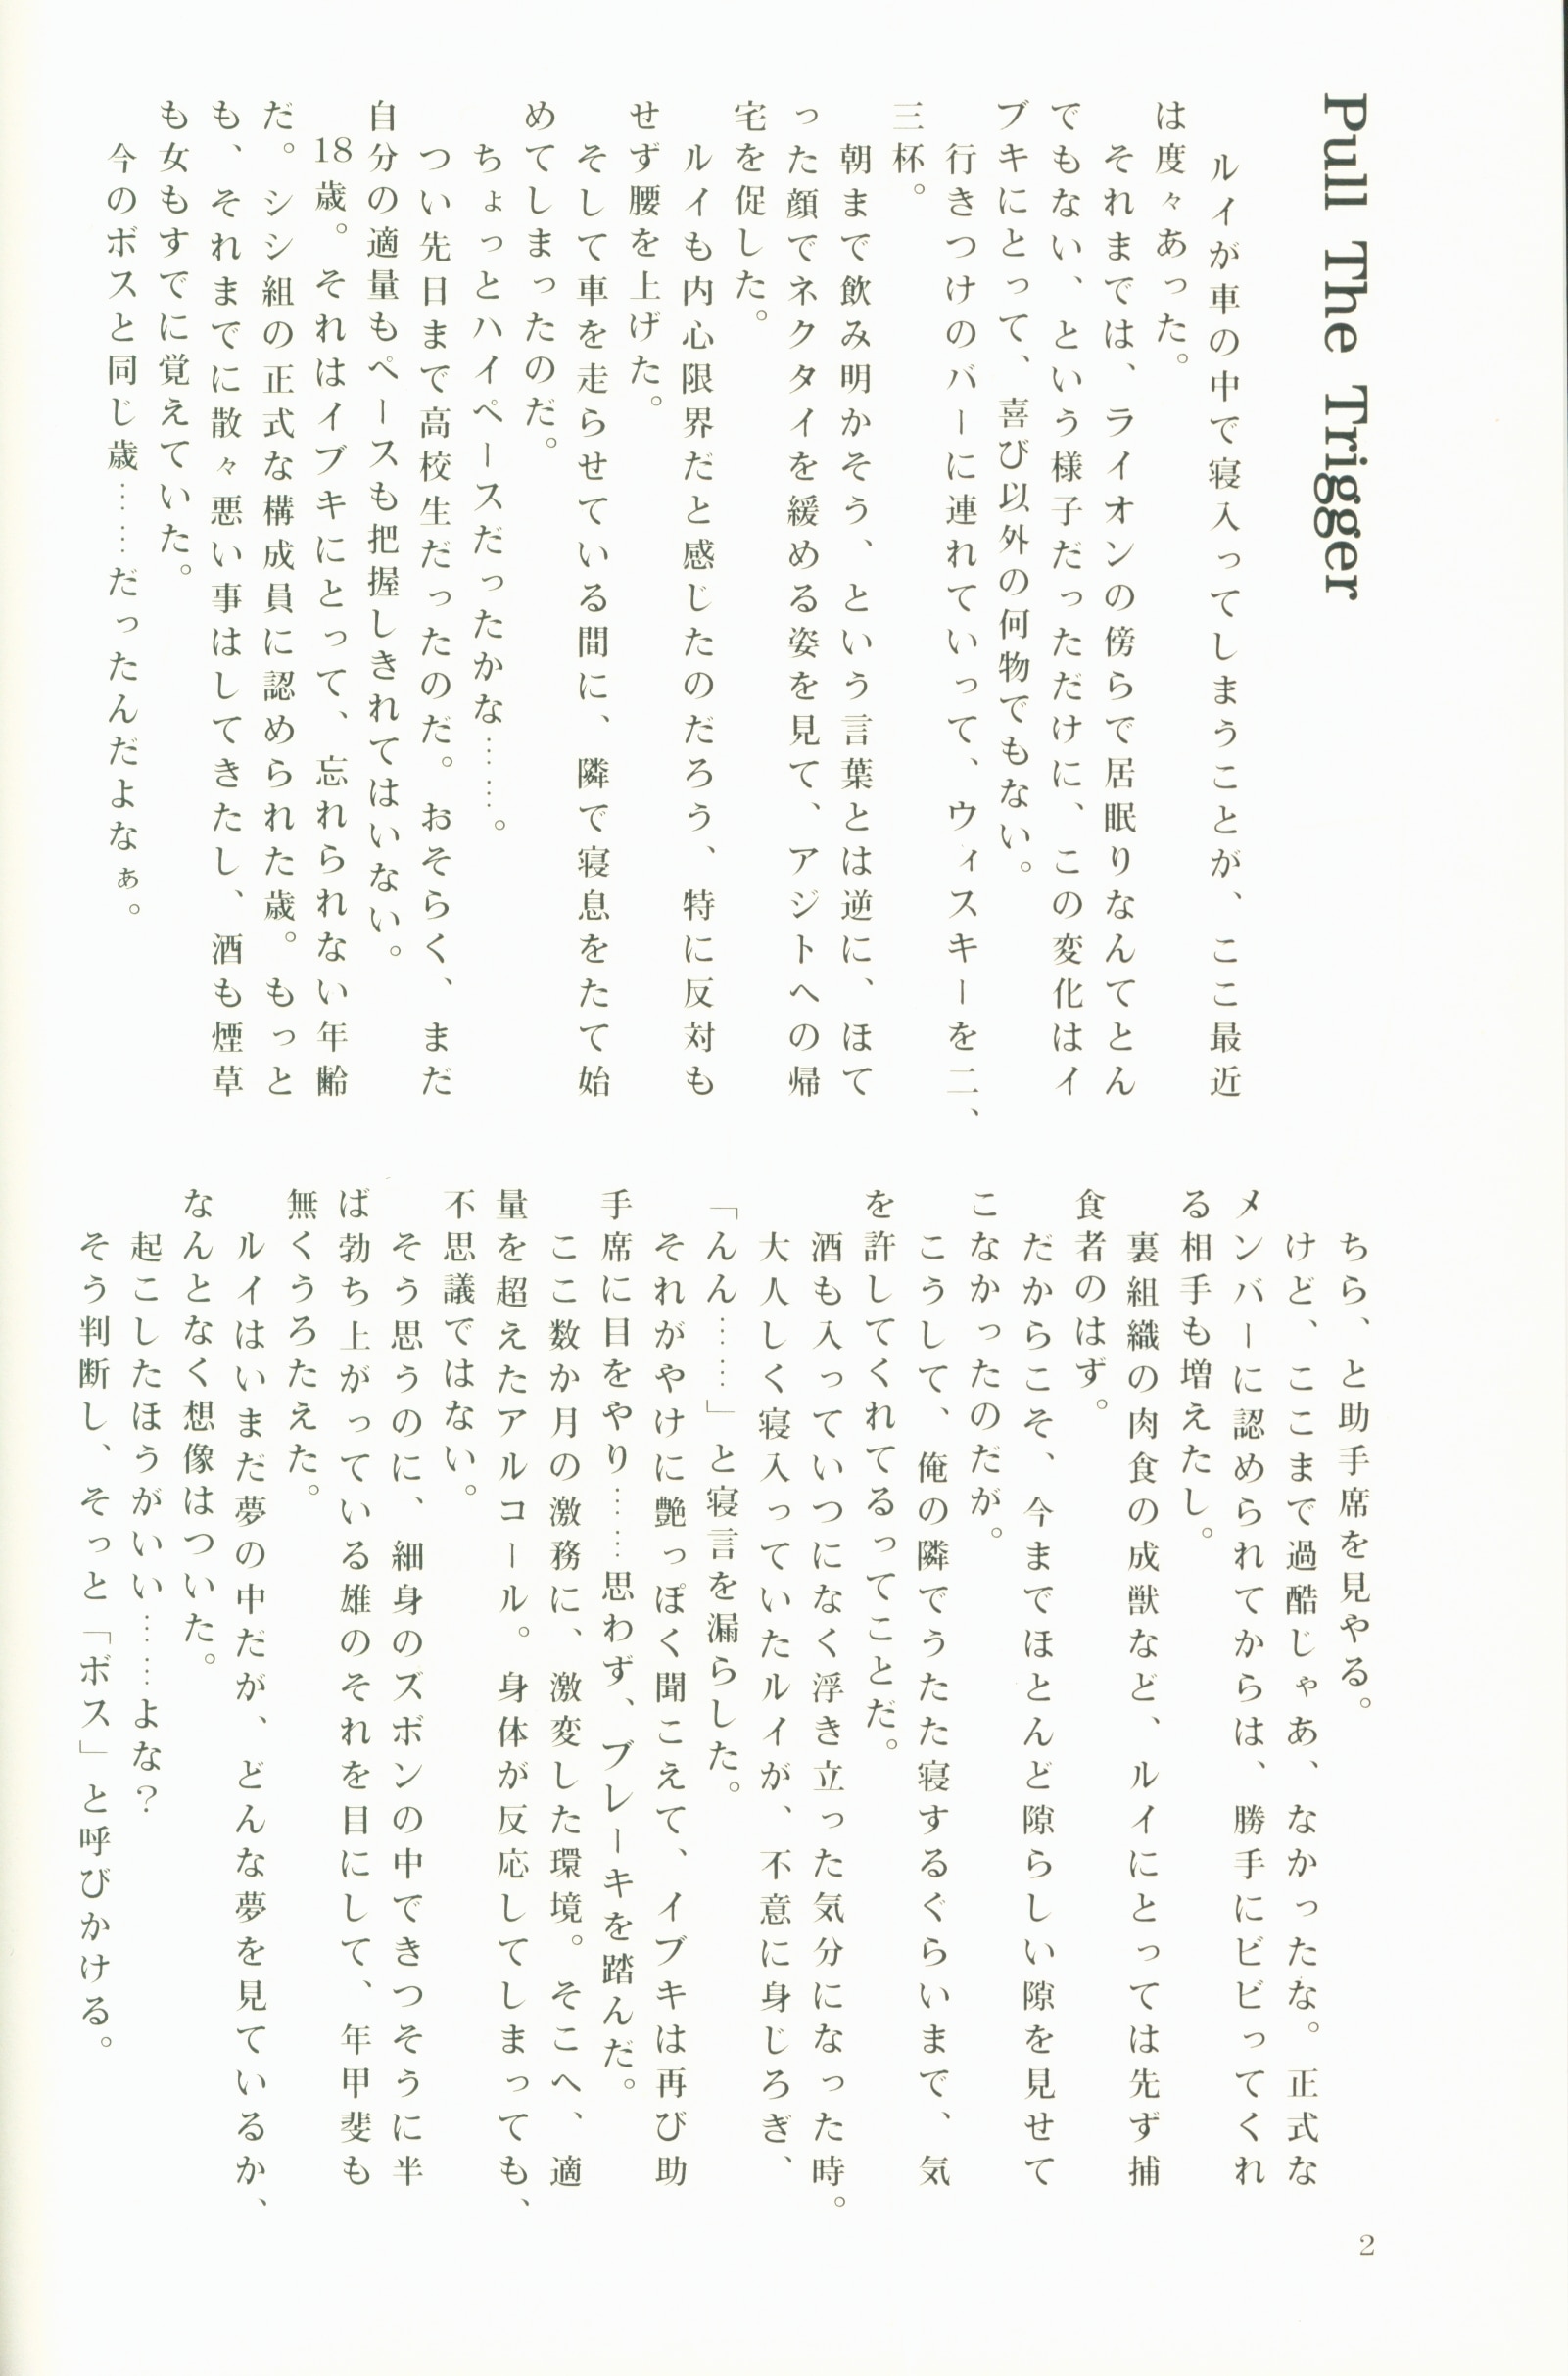 Pull The Trigger
　ルイが車の中で寝入ってしまうことが、ここ最近
は度々あった。
　それまでは、ライオンの傍らで居眠りなんてとん
でもない、という様子だっただけに、この変化はイ
ブキにとって、喜び以外の何物でもない。
　行きつけのバーに連れていって、ウィスキーを二、
三杯。
　朝まで飲み明かそう、という言葉とは逆に、ほて
った顔でネクタイを緩める姿を見て、アジトへの帰
宅を促した。
　ルイも内心限界だと感じたのだろう、特に反対も
せず腰を上げた。
　そして車を走らせている間に、隣で寝息をたて始
めてしまったのだ。
　ちょっとハイペースだったかな……。
　つい先日まで高校生だったのだ。おそらく、まだ
自分の適量もペースも把握しきれてはいない。
　18歳。それはイブキにとって、忘れられない年齢
だ。シシ組の正式な構成員に認められた歳。もっと
も、それまでに散々悪い事はしてきたし、酒も煙草
も女もすでに覚えていた。
　今のボスと同じ歳……だったんだよなぁ。
　ちら、と助手席を見やる。
　けど、ここまで過酷じゃあ、なかったな。正式な
メンバーに認められてからは、勝手にビビってくれ
る相手も増えたし。
　裏組織の肉食の成獣など、ルイにとっては先ず捕
食者のはず。
　だからこそ、今までほとんど隙らしい隙を見せて
こなかったのだが。
　こうして、俺の隣でうたた寝するぐらいまで、気
を許してくれてるってことだ。
　酒も入っていつになく浮き立った気分になった時。
　大人しく寝入っていたルイが、不意に身じろぎ、
「んん……」と寝言を漏らした。
　それがやけに艶っぽく聞こえて、イブキは再び助
手席に目をやり……思わず、ブレーキを踏んだ。
　ここ数か月の激務に、激変した環境。そこへ、適
量を超えたアルコール。身体が反応してしまっても、
不思議ではない。
　そう思うのに、細身のズボンの中できつそうに半
ば勃ち上がっている雄のそれを目にして、年甲斐も
無くうろたえた。
　ルイはいまだ夢の中だが、どんな夢を見ているか、
なんとなく想像はついた。
　起こしたほうがいい……よな？
　そう判断し、そっと「ボス」と呼びかける。
2